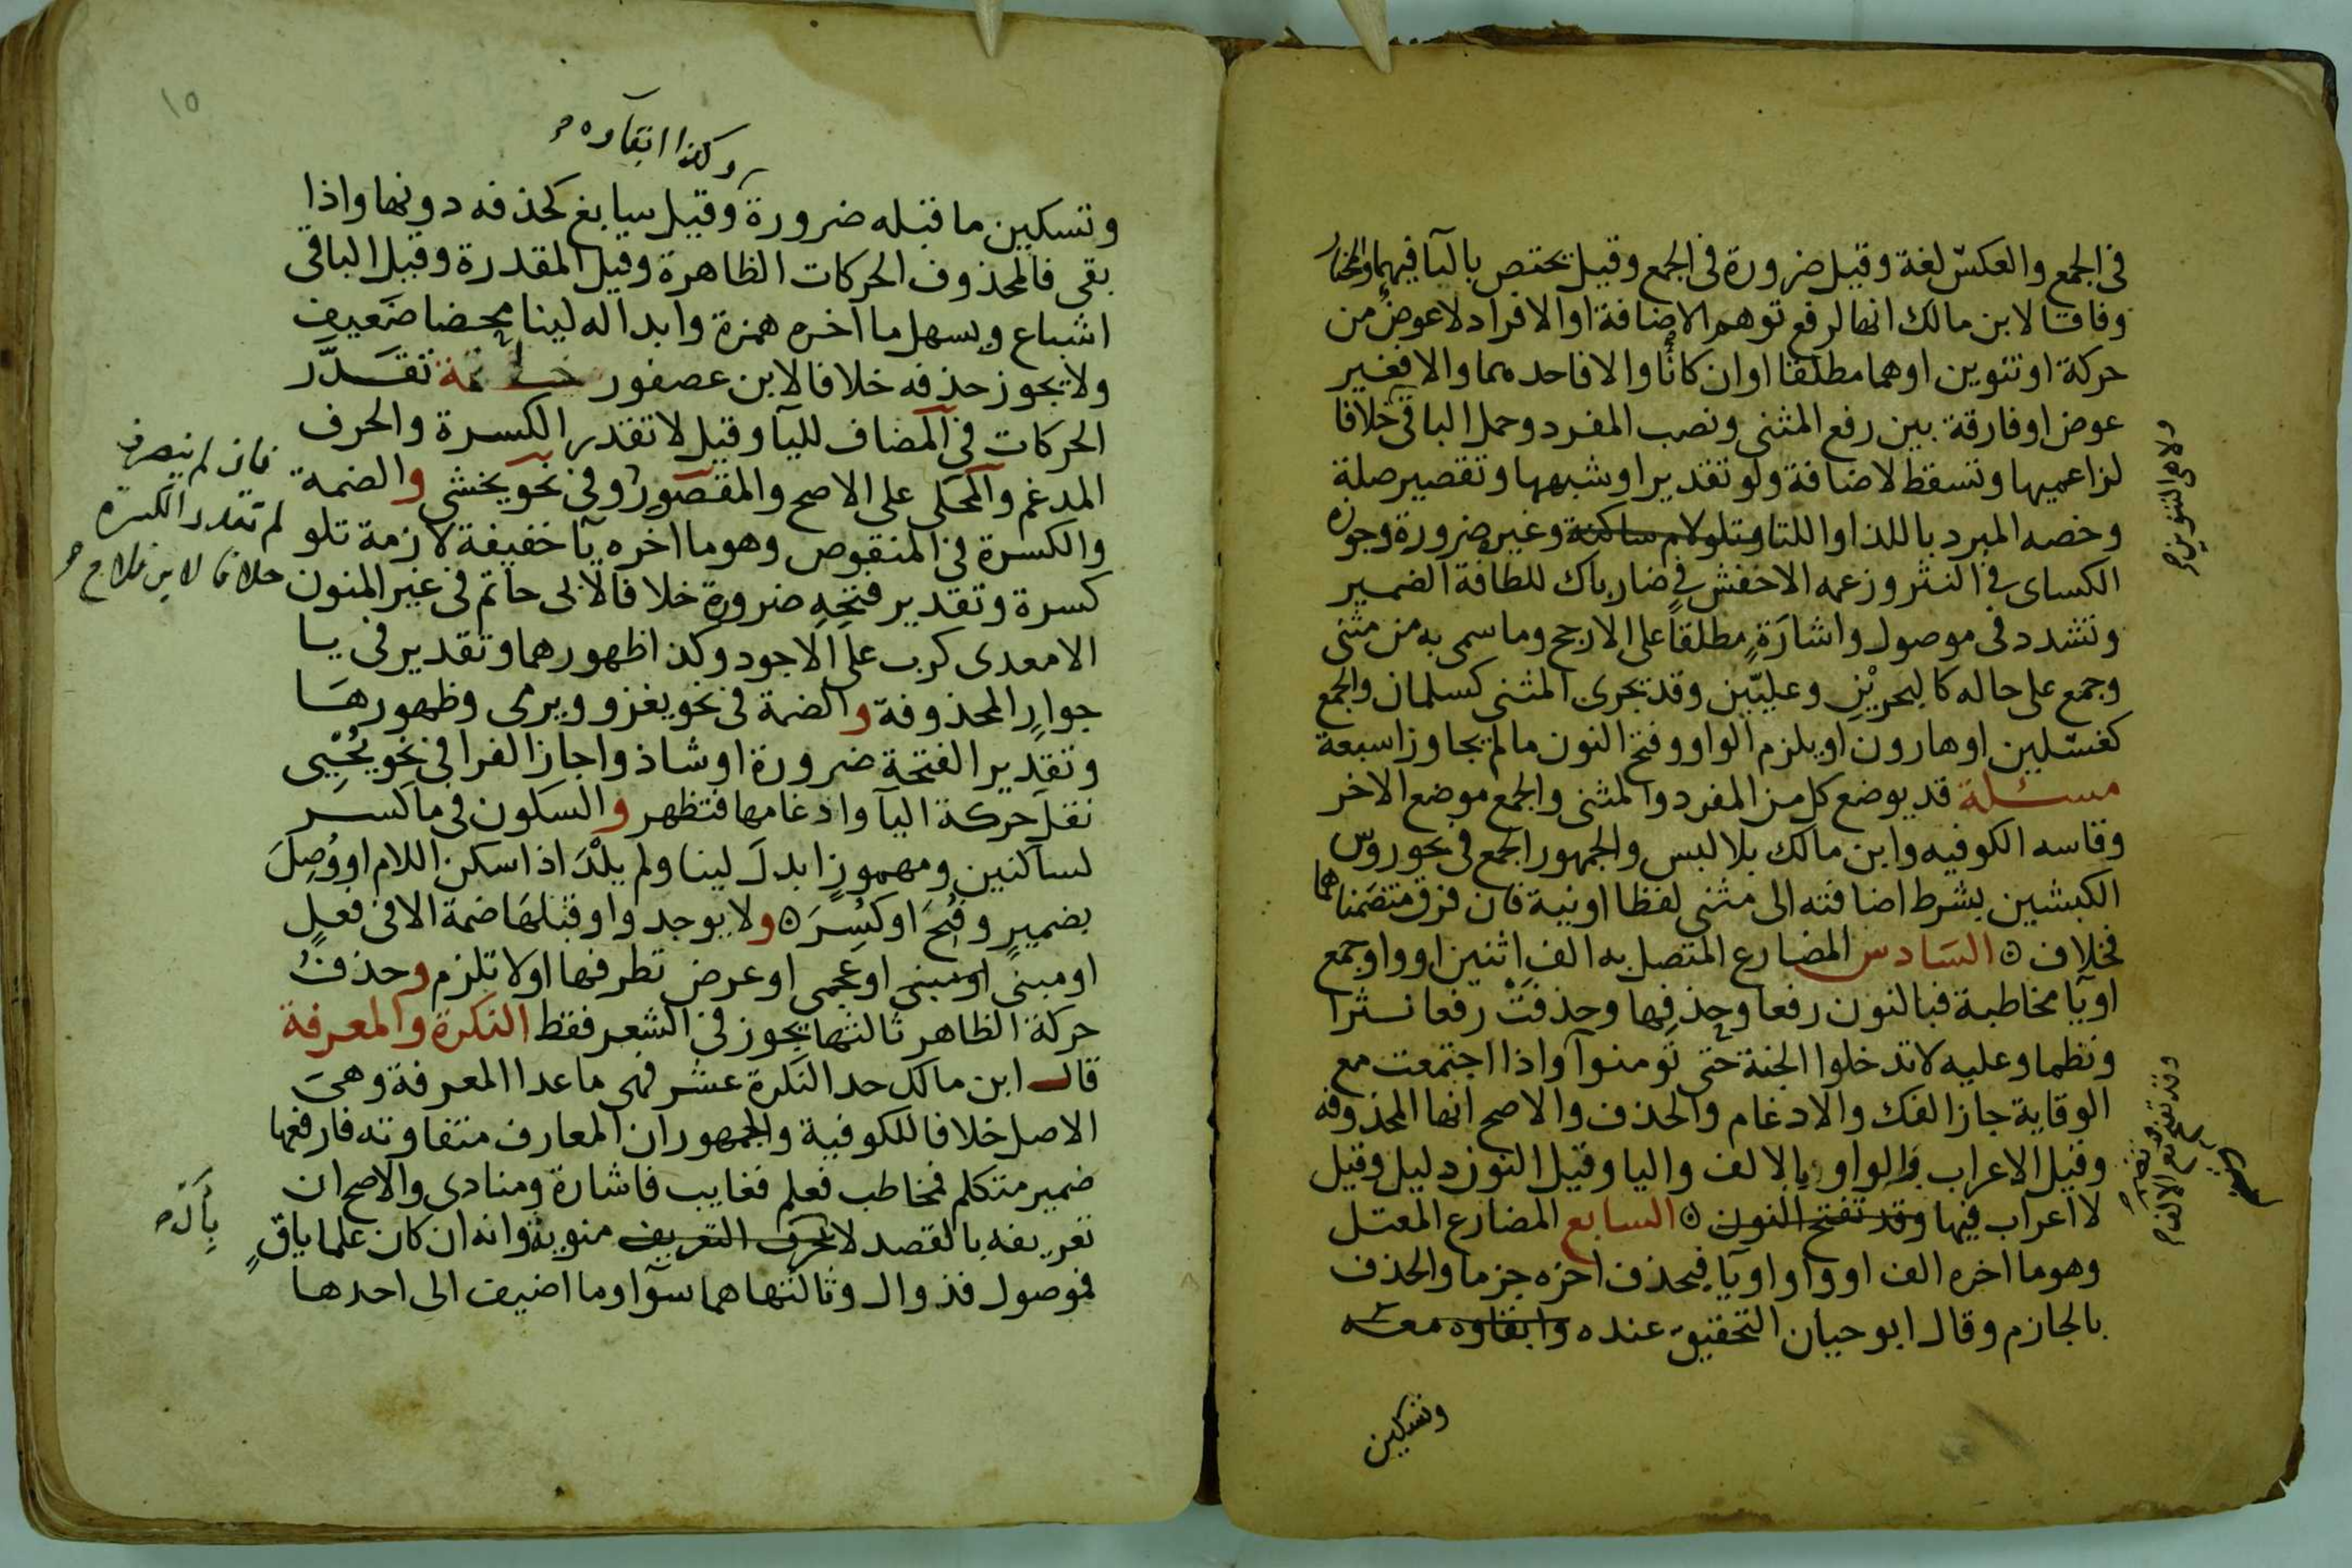 في الجمع والعكس لغة وقيل ضرورة في الجمع وقيل يختص باليآ فيهما والمختار
وفاقا لابن مالك انها لرفع توهم الاضافة او الافراد لا عوض من
حركة او تنوين او هما مطلقا او ان كانا والا فاحدهما والا فغير
عوض او فارقة بين رفع المثنى ونصب المفرد وحمل الباقي خلافا
لزاعميها وتسقط لاضافة ولو تقديرا وشبهها وتقصير صلة
وخصه المبرد باللذا واللتا وتلو لام ساكنة وغيره ضرورة وجوزه
الكساى في النثر وزعمه الاخفش في ضارباك للطافة الضمير
وتشدد في موصول واشارة مطلقا على الارجح وما سمى به من مثنى
وجمع على حاله كالبحرين وعليين وقد يجرى المثنى كسلمان والجمع
كغسلين او هارون او يلزم الواو وفتح النون ما لم يجاوزا سبعة
مسئلة قد يوضع كل من المفرد والمثنى والجمع موضع الاخر
وقاسه الكوفيه وابن مالك بلا لبس والجمهور الجمع في نحو روس
الكبشين بشرط اضافته الى مثنى لفظا او نية فان فرق متضمناهما
فخلاف ه السادس المضارع المتصل به الف اثنين او واو جمع
او يآ مخاطبة فبالنون رفعا وحذفها وحذفت رفعا نثرا
ونظما وعليه لا تدخلوا الجنة حتى تومنوا واذا اجتمعت مع
الوقاية جاز الفك والادغام والحذف والاصح انها المحذوفه
وقيل الاعراب بالواو والالف واليا وقيل النون دليل وقيل
لا اعراب فيها وقد تفتح النون ه السابع المضارع المعتل
وهو ما اخره الف او واو او يآ فيحذف اخره جزما والحذف
بالجازم وقال ابو حيان التحقيق عنده وابقاوه معه
وتسكين
ولا هي التنوين
وقد تفتح مع الالف
وكذا ابقاوه
وتسكين ما قبله ضرورة وقيل سايغ كحذفه دونها واذا
بقى فالمحذوف الحركات الظاهرة وقيل المقدرة وقيل الباقي
اشباع ويسهل ما اخره همزة وابداله لينا محضا ضعيف
ولا يجوز حذفه خلافا لابن عصفور خاتمة تقدر
الحركات في المضاف لليآ وقيل لا تقدر الكسرة والحرف
المدغم والمحكى على الاصح والمقصور وفي نحو يخشى والضمة
والكسرة في المنقوص وهو ما اخره يآ خفيفة لازمة تلو
كسرة وتقدير فتحه ضرورة خلافا لابى حاتم في غير المنون
الا معدى كرب على الاجود وكذا ظهورهما وتقدير في يا
جوار المحذوفة والضمة في نحو يغزو ويرمى وظهورها
وتقدير الفتحة ضرورة او شاذ واجاز الفرا في نحو يحيى
نقل حركة اليآ وادغامها فتظهر والسكون في ما كسر
لساكنين ومهموز ابدل لينا ولم يلد اذا سكن اللام او وصل
بضمير وفتح او كسر ه ولا يوجد واو قبلها ضمة الا في فعل
او مبنى او مبنى او عجمى او عرض تطرفها او لا تلزم وحذف
حركة الظاهر ثالثها يجوز في الشعر فقط النكرة والمعرفة
قال ابن مالك حد النكرة عسر فهي ما عدا المعرفة وهي
الاصل خلافا للكوفية والجمهور ان المعارف متفاوته فارفعها
ضمير متكلم فمخاطب فعلم فغايب فاشارة ومنادى والاصح ان
تعريفه بالقصد لا بحرف التعريف منوية وانه ان كان علما باق
فموصول فذو ال وثالثها هما سوآ وما اضيف الى احدها
فان لم ينصرف
لم تقدر الكسرة
خلافا لابن فلاح
بأل
١٥